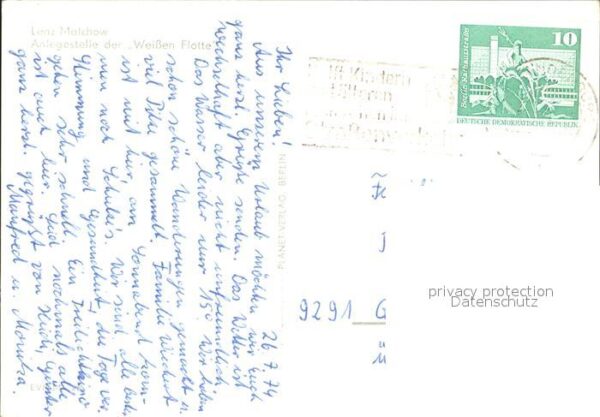 Lenz Malchow
Anlegestelle der „Weißen Flotte
26.7.74
Ihr Lieben!
Aus unserem Urlaub möchten wir Euch
ganz herzl. Grüße senden. Das Wetter ist
wechselhaft aber nicht unfreundlich
Das Wasser leider nur 15°. Wir haben
schon schöne Wanderungen gemacht u.
viel Pilze gesammelt. Familie
ist mit hier, am Sonnabend kom-
men noch Schulze's. Wir sind alle bester
Stimmung und Gesundheit, die Tage ver-
gehen sehr schnell. Ein Freilichtkino
ist auch hier. Seid nochmals alle
ganz herzl. gegrüßt von Heidi, Günter
Manfred u. Monika.
PLANET-VERLAG BERLIN
10
DEUTSCHE DEMOKRATISCHE REPUBLIK
Kindern
9291 G
privacy protection
Datenschutz